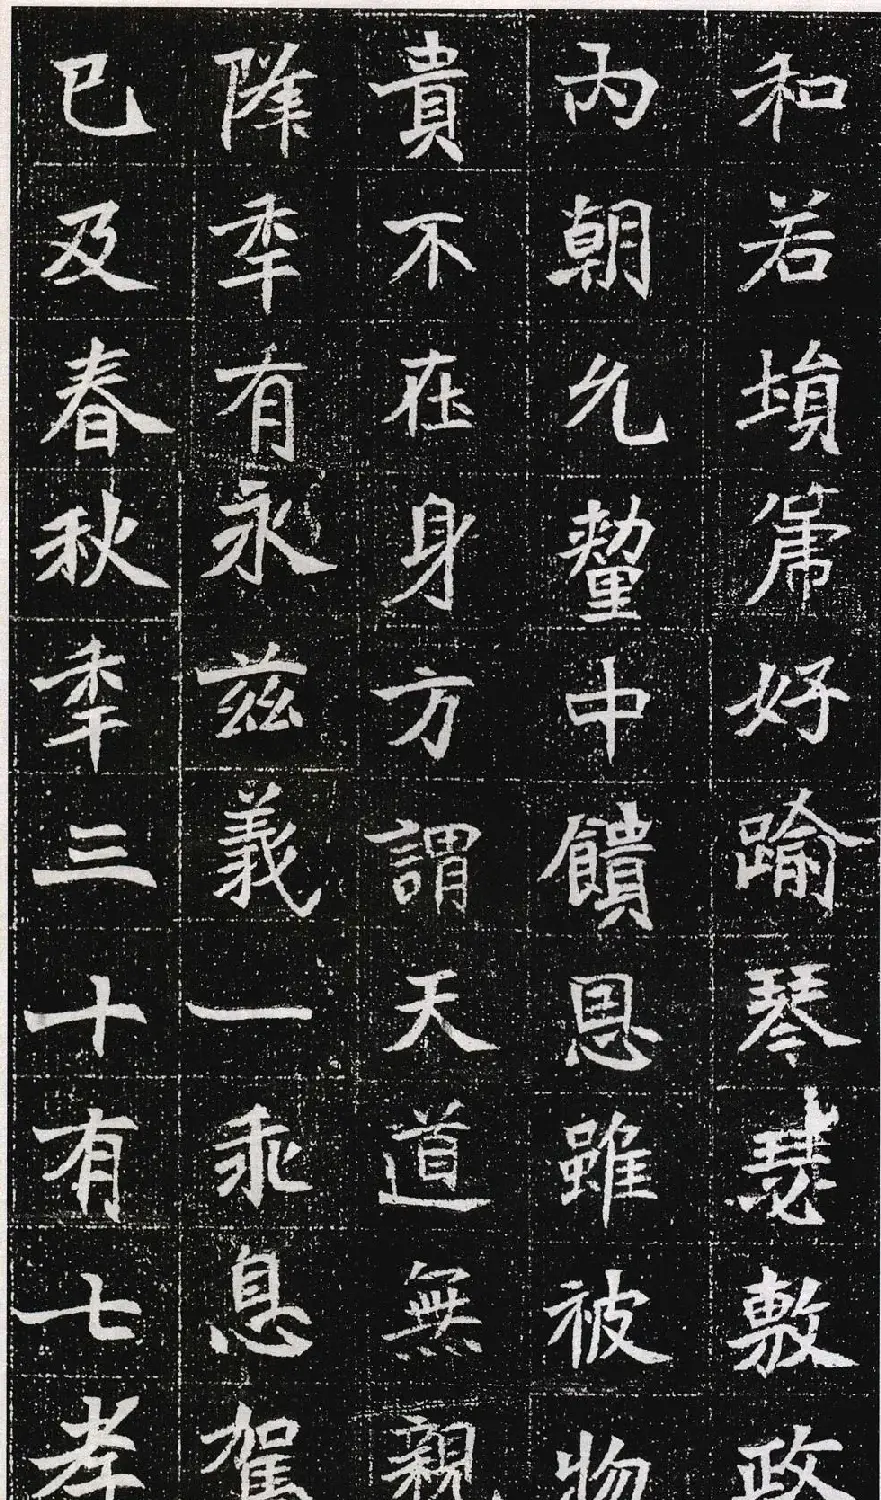 和若塤箎好踰琴瑟敷政
內朝允釐中饋恩雖被物
貴不在身方謂天道無親
降秊有永兹義一乖息駕
已及春秋秊三十有七孝